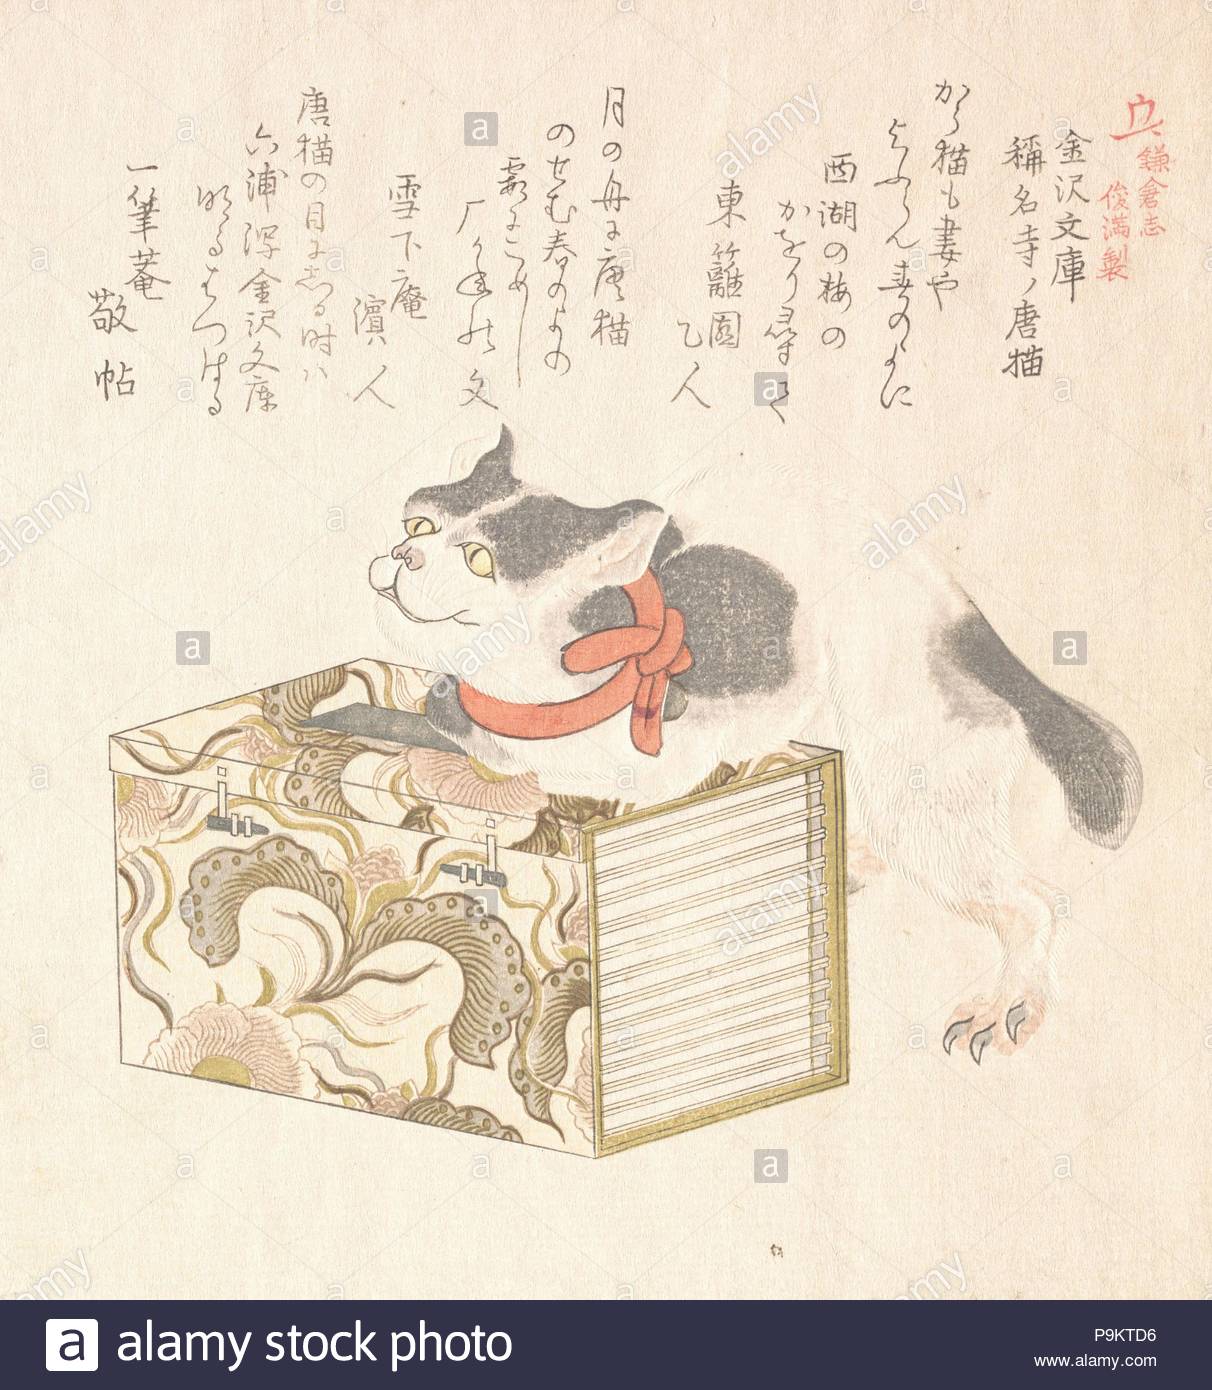 鎌倉志
俊満製
金沢文庫
稱名寺ノ唐猫
から猫も妻や
よふらん春のよに
西湖の梅の
かをり尋て
東籬園
乙人
月の舟に唐猫
のせむ春のよの
霞にこめし
文
雪下庵
濱人
唐猫の目にしる時ハ
六浦潟金沢文庫
明るはつはる
一筆菴
敬帖
alamy stock photo
P9KTD6
www.alamy.com